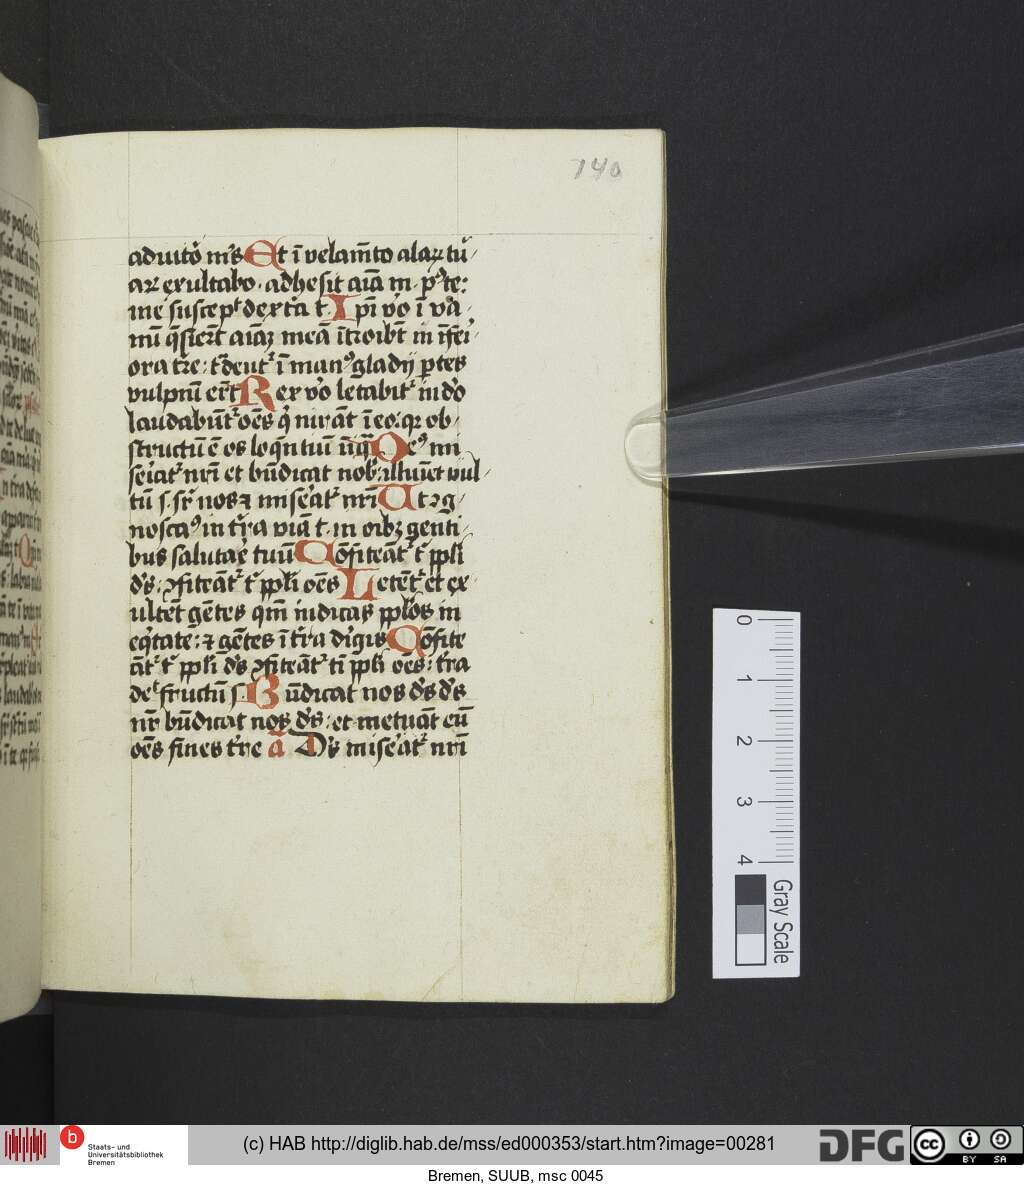 140
adiutō m's Et ī velam̄to alaꝝ tu
aꝝ exultabo. adhesit aīa m. p't te:
me suscep't dext̄a t. Ipī v̊o ī va
nū q̄sier̄t aīaꝫ meā ītroibt̄ in īferi
ora tr̄e: t'dent' ī man' gladij p̄tes
vulpiū er̄t Rex v̊o letabit' in dō
laudabūt' oēs q̇ iurāt ī eo: qꝛ ob
structū ē os loqn̄tiū iniq̄ De' mi
se'eat' nr̄i et bn̄dicat nob': illūīet vul
tū s. sr̄ nos ⁊ mise'eat' nr̄i Ut ꝯg
nosca' in tr̄a viā t. in oībꝫ genti
bus salutar̄e tuū Cōfiteāt' t' ppl̄i
d's: ꝯfiteāt' t' ppl̄i oēs Letēt' et ex
ultēt gētes qm̄ iudicas ppl̄os in
eq̇tate: ⁊ gētes ī tr̄a dir̄igis Cōfite
āt' t' ppl̄i d's ꝯfiteāt' ti ppl̄i oēs: tr̄a
de' fructū s. Bn̄dicat nos d's d's
nr̄ bn̄dicat nos d's: et metuāt eū
oēs fines tr̄e ā D's mise'eat' nr̄i
0
1
2
3
4
Gray Scale
b
Staats- und
Universitätsbibliothek
Bremen
(c) HAB http://diglib.hab.de/mss/ed000353/start.htm?image=00281
DFG
cc
BY SA
Bremen, SUUB, msc 0045